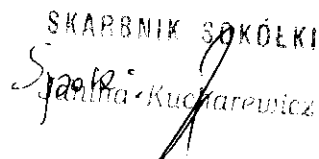 SKARBNIK SOKÓŁKI
Janina Kucharewicz